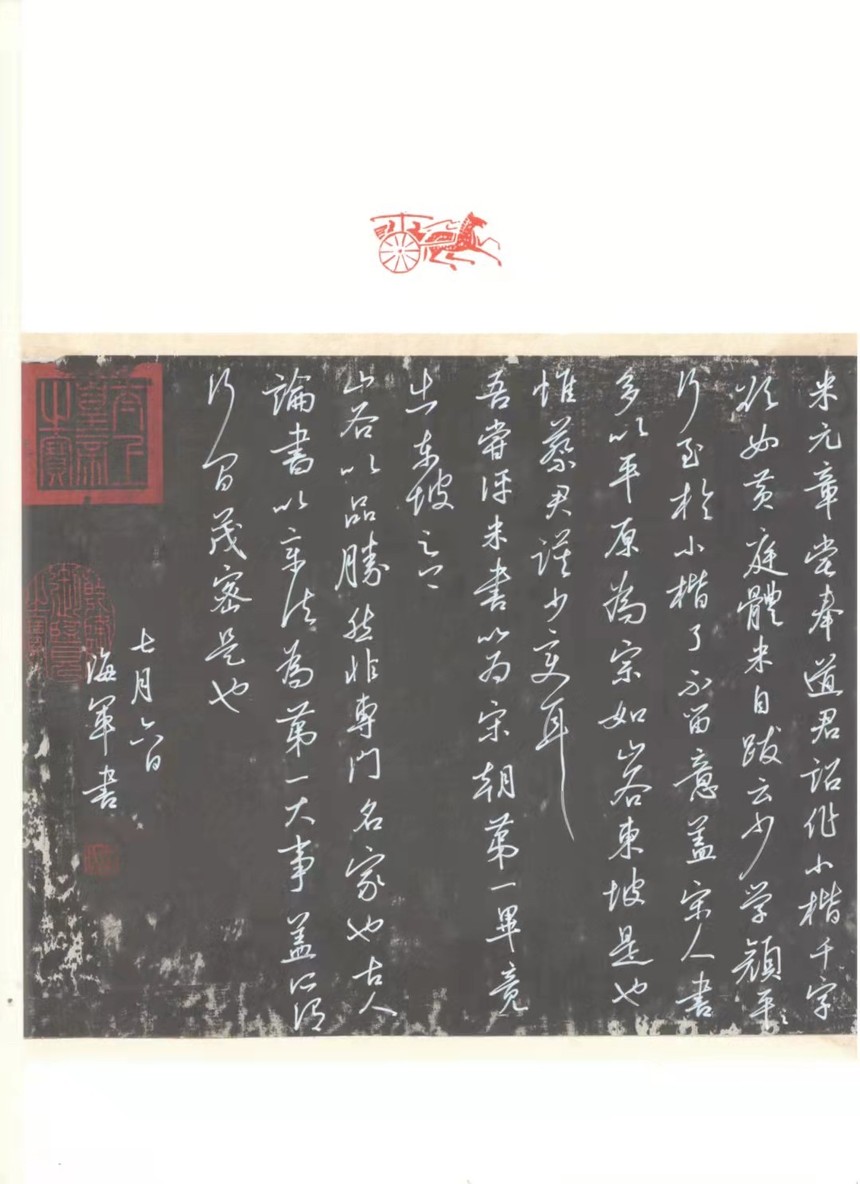 米元章尝奉道君詔作小楷千字
欲如黄庭體米自跋云少学顏平
行至於小楷了不留意盖宋人書
多以平原為宗如山谷東坡是也
惟蔡君謨少变耳
吾嘗评米書以为宋朝第一畢竟
出东坡之上
山谷以品勝然非専门名家也古人
論書以章法為第一大事盖所谓
行间茂密是也
七月六日
海军书
太上皇帝之寶